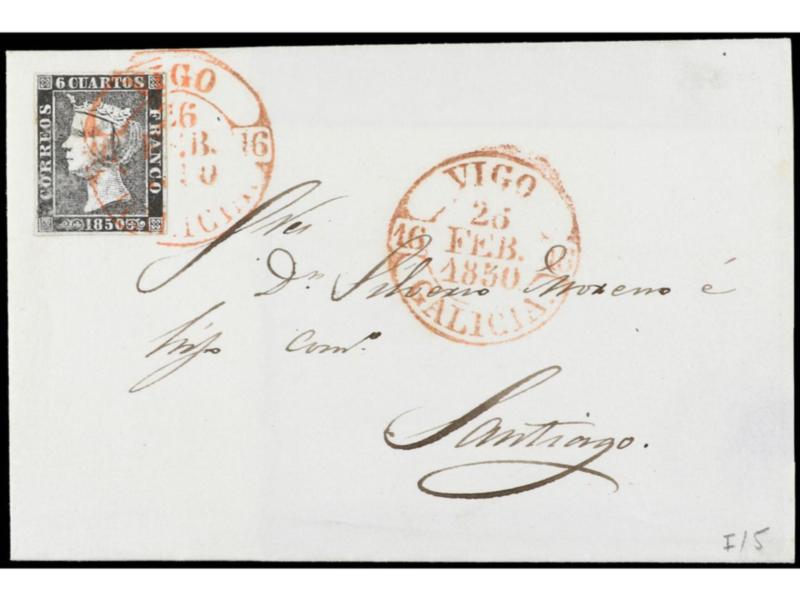 6 CUARTOS
CORREOS
FRANCO
1850
VIGO
26
FEB.
16
GALICIA.
VIGO
25
16
FEB.
1850
GALICIA.
Dn Silverio Moreno é
hijo comº
Santiago.
I/5